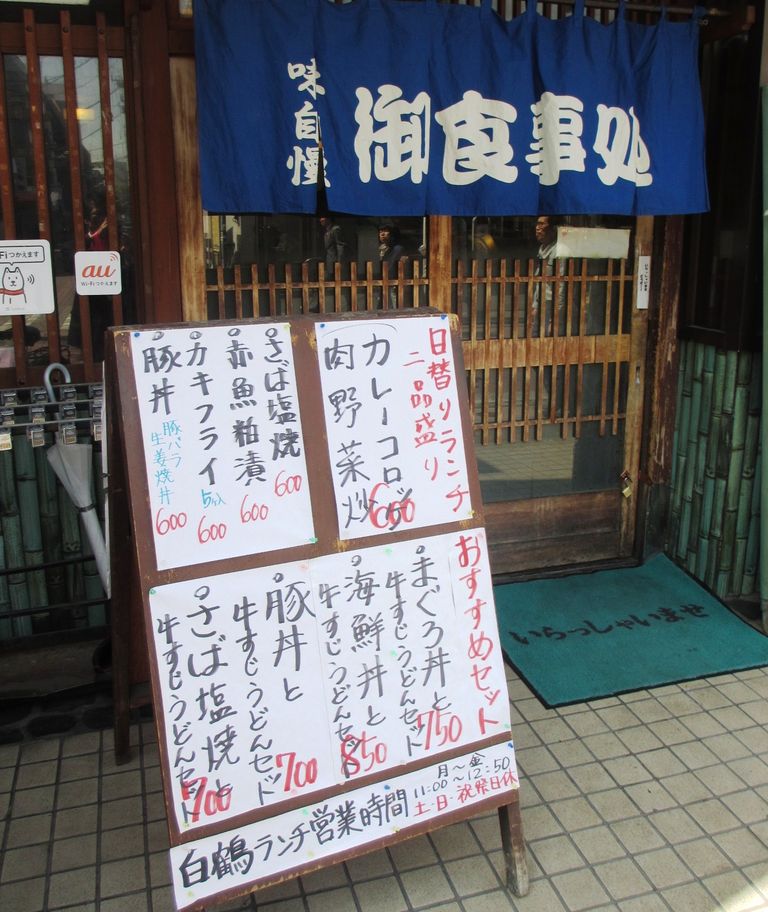 味自慢
御食事処
Fiつかえます
au
Wi-Fiつかえます
日替りランチ
二品盛り
カレーコロッケ
肉野菜炒
600
さば塩焼 600
赤魚粕漬 600
カキフライ 5ヶ入 600
豚丼 豚バラ生姜焼丼 600
おすすめセット
まぐろ丼と
牛すじうどんセット 750
海鮮丼と
牛すじうどんセット 850
豚丼と
牛すじうどんセット 700
さば塩焼と
牛すじうどんセット 700
白鶴ランチ営業時間
月～金
11:00～12:50
土・日・祝祭日休
いらっしゃいませ